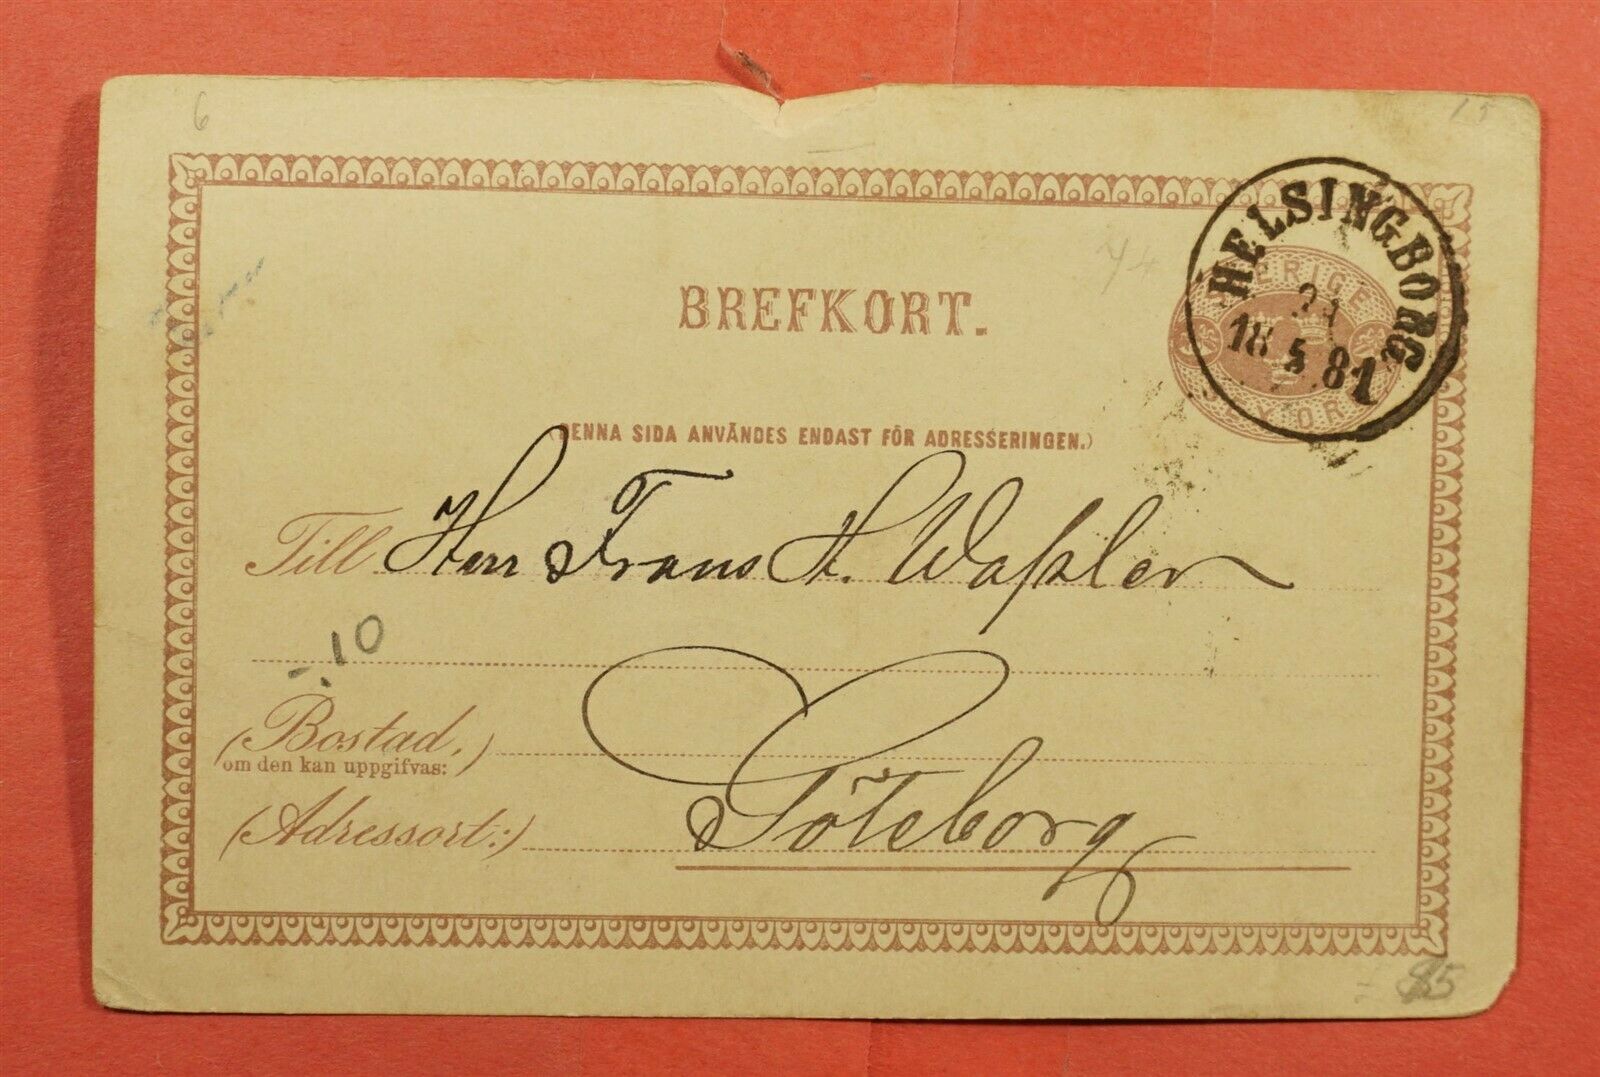 6
15
HELSINGBORG
18 5 81
SVERIGE
SEX ÖRE
BREFKORT.
(DENNA SIDA ANVÄNDES ENDAST FÖR ADRESSERINGEN.)
Till Herr Frans H. Waſsler
-.10
(Bostad,)
om den kan uppgifvas:
(Adressort:) Göteborg